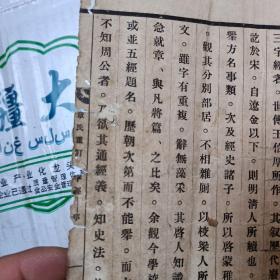 三字經者
訖於宋。自遼金以下。則明清人所續也
舉方名事類。次及經史諸子。所以啓蒙稚
。觀其分別部居。不相雜廁。以校梁人所
文。雖字有重複。辭無藻采。其啓人知識
急就章、與凡將篇、之比矣。余觀今學校
或並五經題名。歷朝次第而不能舉。而
不知周公者。乃欲其通經義。知史法。
章氏重訂
疆 大
产·业化龙